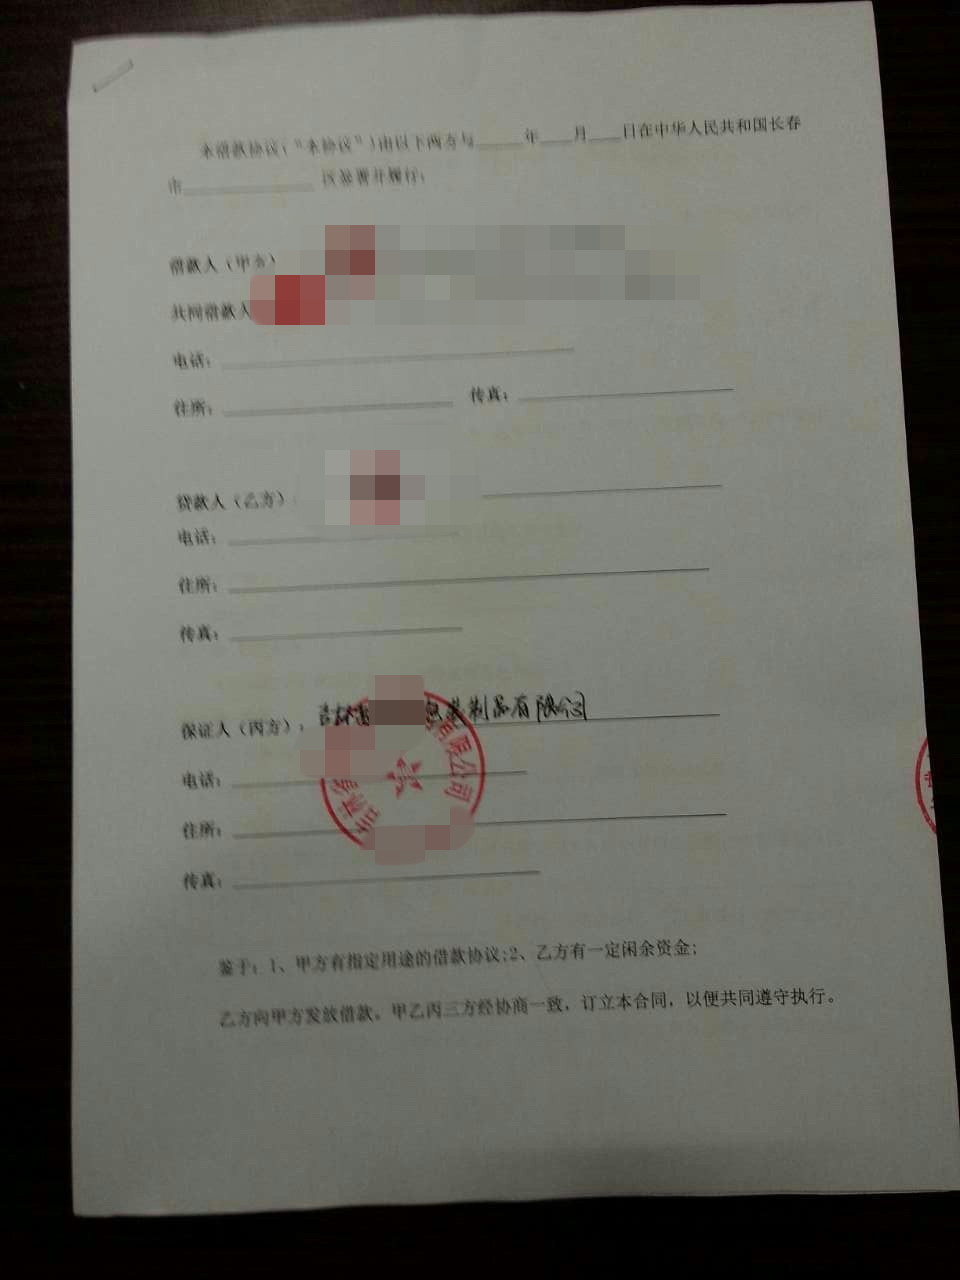 本借款协议（“本协议”）由以下两方与____年___月___日在中华人民共和国长春
市____________ 区签署并履行：
借款人（甲方）
共同借款人
电话：
住所： 传真：
贷款人（乙方）
电话：
住所：
传真：
保证人（丙方）： 吉林省 包装制品有限公司
有限公司
吉林省
电话：
住所：
传真：
鉴于：1、甲方有指定用途的借款协议;2、乙方有一定闲余资金;
乙方向甲方发放借款。甲乙丙三方经协商一致，订立本合同，以便共同遵守执行。